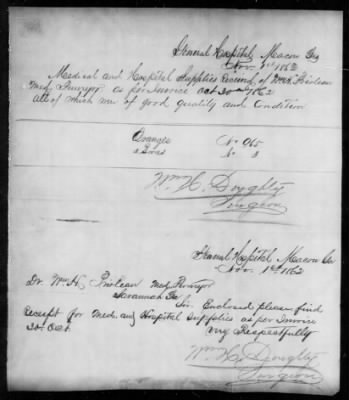 General Hospital Macon Ga
Nov. 1st 1862
Medical and Hospital Supplies Received of Dr W.H. Prioleau
Med. Purveyor as per Invoice Oct 30th 1862
all of which are of good quality and condition
Oranges No 965
Boxes No 3
Wm H. Doughty
Surgeon
General Hospital Macon Ga
Nov. 1st 1862
Dr. Wm H. Prioleau Med. Purveyor
Savannah Ga
Sir. Enclosed please find
Receipt for Med. and Hospital Supplies as per Invoice
30 Oct. Very Respectfully
Wm H. Doughty
Surgeon